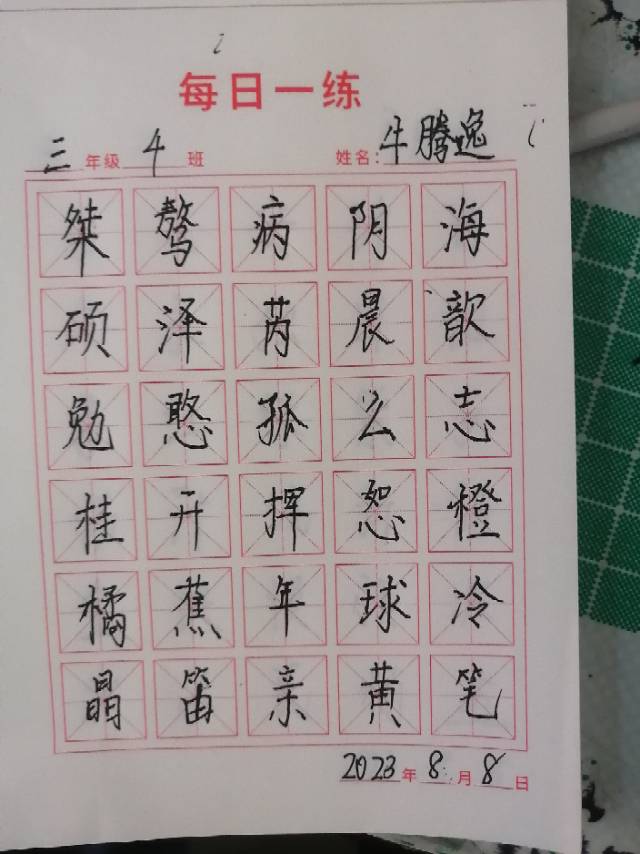 每日一练
三年级 4 班 姓名：牛腾逸
桀 骜 病 阴 海
硕 泽 芮 晨 歆
勉 憨 孤 么 志
桂 开 挥 恕 橙
橘 蕉 年 球 冷
晶 笛 亲 黄 笔
2023 年 8 月 8 日